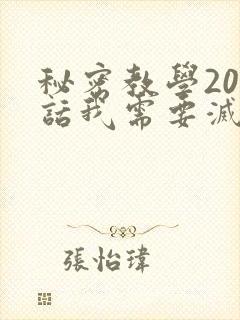 秘密教學20
話我需要滅
張怡瑋